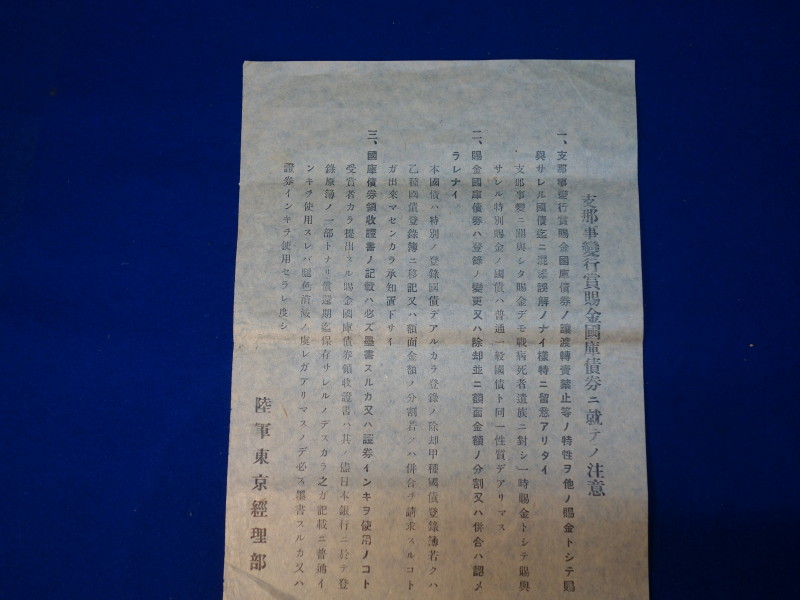 支那事變行賞賜金國庫債券ニ就テノ注意
一、支那事變行賞賜金國庫債券ノ讓渡轉賣禁止等ノ特性ヲ他ノ賜金トシテ賜
與サレル國債迄ニ誤解ノナイ樣特ニ留意アリタイ
支那事變ニ關與シタ賜金デモ戰病死者遺族ニ對シ一時賜金トシテ賜與
サレル特別賜金ノ國債ハ普通一般國債ト同一性質デアリマス
二、賜金國庫債券ハ登錄ノ變更又ハ除却並ニ額面金額ノ分割又ハ併合ハ認メ
ラレナイ
本國債ハ特別ノ登錄國債デアルカラ登錄ノ除却甲種國債登錄簿若クハ
乙種國債登錄簿ニ移記又ハ額面金額ノ分割若クハ併合ヲ請求スルコト
ガ出來マセンカラ承知置下サイ
三、國庫債券領收證書ノ記載ハ必ズ墨書スルカ又ハ證券インキヲ使用ノコト
受賞者カラ提出スル賜金國庫債券領收證書ハ其ノ儘日本銀行ニ於テ登
錄原簿ノ一部トナリ償還期迄保存サレルノデスカラ之ガ記載ニ普通イ
ンキヲ使用スレバ褪色消滅ノ虞レガアリマスノデ必ズ墨書スルカ又ハ
證券インキヲ使用セラレ度シ
陸軍東京經理部